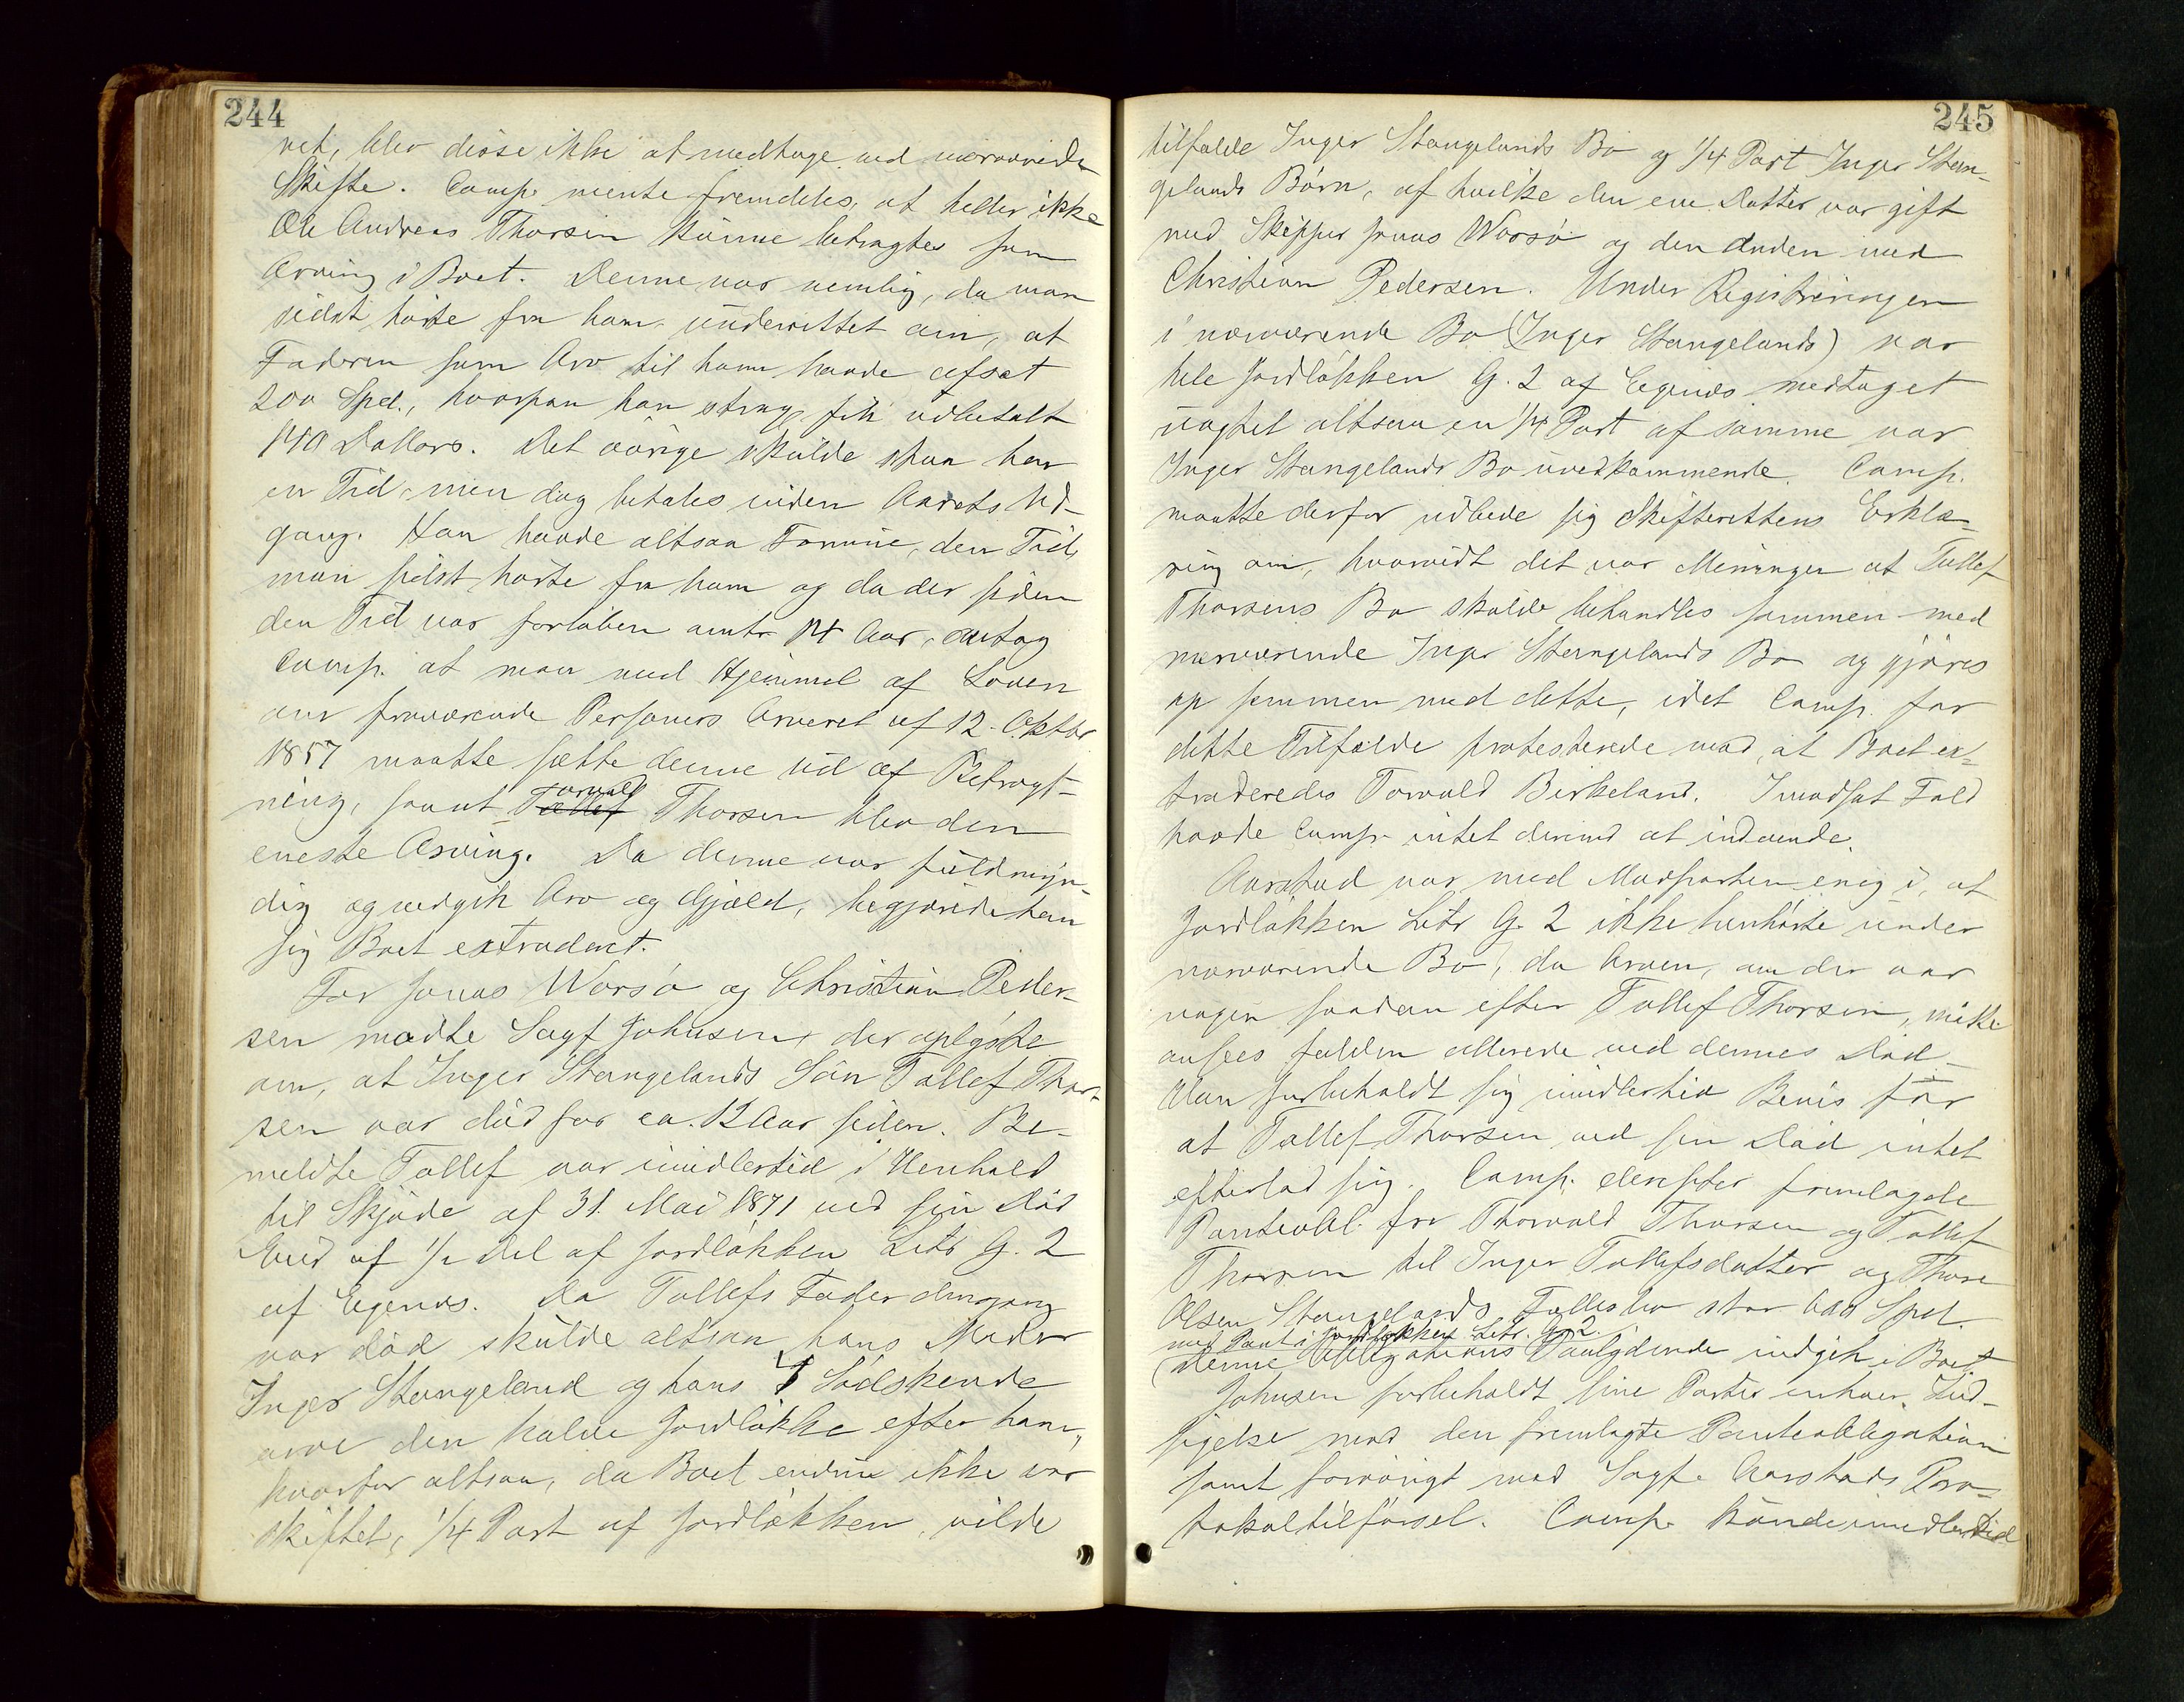 244
ret, blev disse ikke at medtage ved nærværende
Skifte. Comp. mente fremdeles, at heller ikke
Ole Andreas Thorsen kunne betragtes som
Arving i Boet. Denne var nemlig, da man
sidst hørte fra ham underrettet om, at
Faderen som Arv til ham havde afsat
200 Spd., hvorpaa han strax fik udbetalt
140 Dollars. Det øvrige skulde staa hen
en Tid, men dog betales inden Aarets Ud-
gang. Han havde altsaa Formue, den Tid,
man sidst hørte fra ham og da der siden
den Tid var forløben omtr. 14 Aar, antog
Comp. at man med Hjemmel af Loven
om fraværende Personers Arveret af 12. Oktbr
1857 maatte sætte denne ud af Betragt-
ning, saa at Torvald Thorsen blev den
eneste Arving. Da denne var fuldmyn-
dig og vedgik Arv og Gjæld, begjærede han
sig Boet extraderet.
For Jonas Worsø og Christian Peder-
sen mødte Sagf Johnsen, der oplyste
om, at Inger Stangelands Søn Tollef Thor-
sen var død for ca. 12 Aar siden. Be-
meldte Tollef var imidlertid i Henhold
til Skjøde af 31. Mai 1871 ved sin Død
Eier af 1/2 Del af Jordløkken Litr G. 2
af Egenæs. Da Tollefs Fader dengang
var død skulde altsaa hans Moder
Inger Stangeland og hans Sødskende
arve den halve Jordløkke efter ham,
hvorfor altsaa, da Boet endnu ikke var
skiftet, 1/4 Part af Jordløkken vilde
245
tilfalde Inger Stangelands Bo og 1/4 Part Inger Stan-
gelands Børn, af hvilke den ene Datter var gift
med Skipper Jonas Worsø og den anden med
Christian Pedersen. Under Registreringen
i nærværende Bo (Inger Stangelands) var
hele Jordløkken G. 2 af Egenæs medtaget
uagtet altsaa en 1/4 Part af samme var
Inger Stangelands Bo uvedkommende. Comp.
maatte derfor udbede sig Skifterettens Erklæ-
ring om, hvorvidt det var Meningen at Tollef
Thorsens Bo skulde behandles sammen med
nærværende Inger Stangelands Bo og gjøres
op sammen med dette, idet Comp. for
dette Tilfælde protesterede mod, at Boet ex-
traderedes Torvald Birkeland. I modsat Fald
havde Comp. intet derimod at indvende.
Aarstad var med Modparten enig i, at
Jordløkken Litr G. 2 ikke henhørte under
nærværende Bo, da Arven, om der var
nogen saadan efter Tollef Thorsen, maatte
ansees falden allerede ved dennes Død
Han forbeholdt sig imidlertid Bevis for
at Tollef Thorsen ved sin Død intet
efterlod sig. Comp. derefter fremlagde
Panteobl. fra Thorvald Thorsen og Tollef
Thorsen til Inger Tollefsdatter og Thore
Olsen Stangelands Fællesbo stor 600 Spd.
med Pant i Jordløkken Litr. G. 2.
(Denne Obligations Paalydende indgik i Boet
Johnsen forbeholdt sine Parter enhver Ind-
sigelse mod den fremlagte Panteobligation
samt forøvrigt mod Sagf. Aarstads Pro-
tokoltilførsel. Comp. kunde imidlertid